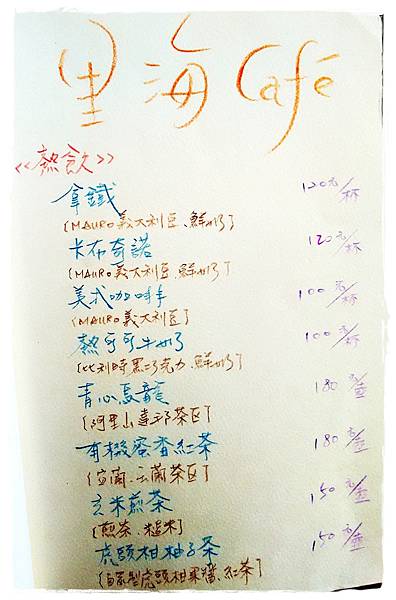 里海 Café
<<熱飲>>
拿鐵 120元/杯
[MAURO義大利豆、鮮奶]
卡布奇諾 120元/杯
[MAURO義大利豆、鮮奶]
美式咖啡 100元/杯
[MAURO義大利豆]
熱可可牛奶 100元/杯
[比利時黑巧克力、鮮奶]
青心烏龍 180元/壺
[阿里山達邦茶區]
有機蜜香紅茶 180元/壺
[宜蘭、云南茶區]
玄米煎茶 150元/壺
[煎茶、糙米]
虎頭柑柚子茶 150元/壺
[自製虎頭柑果醬、紅茶]